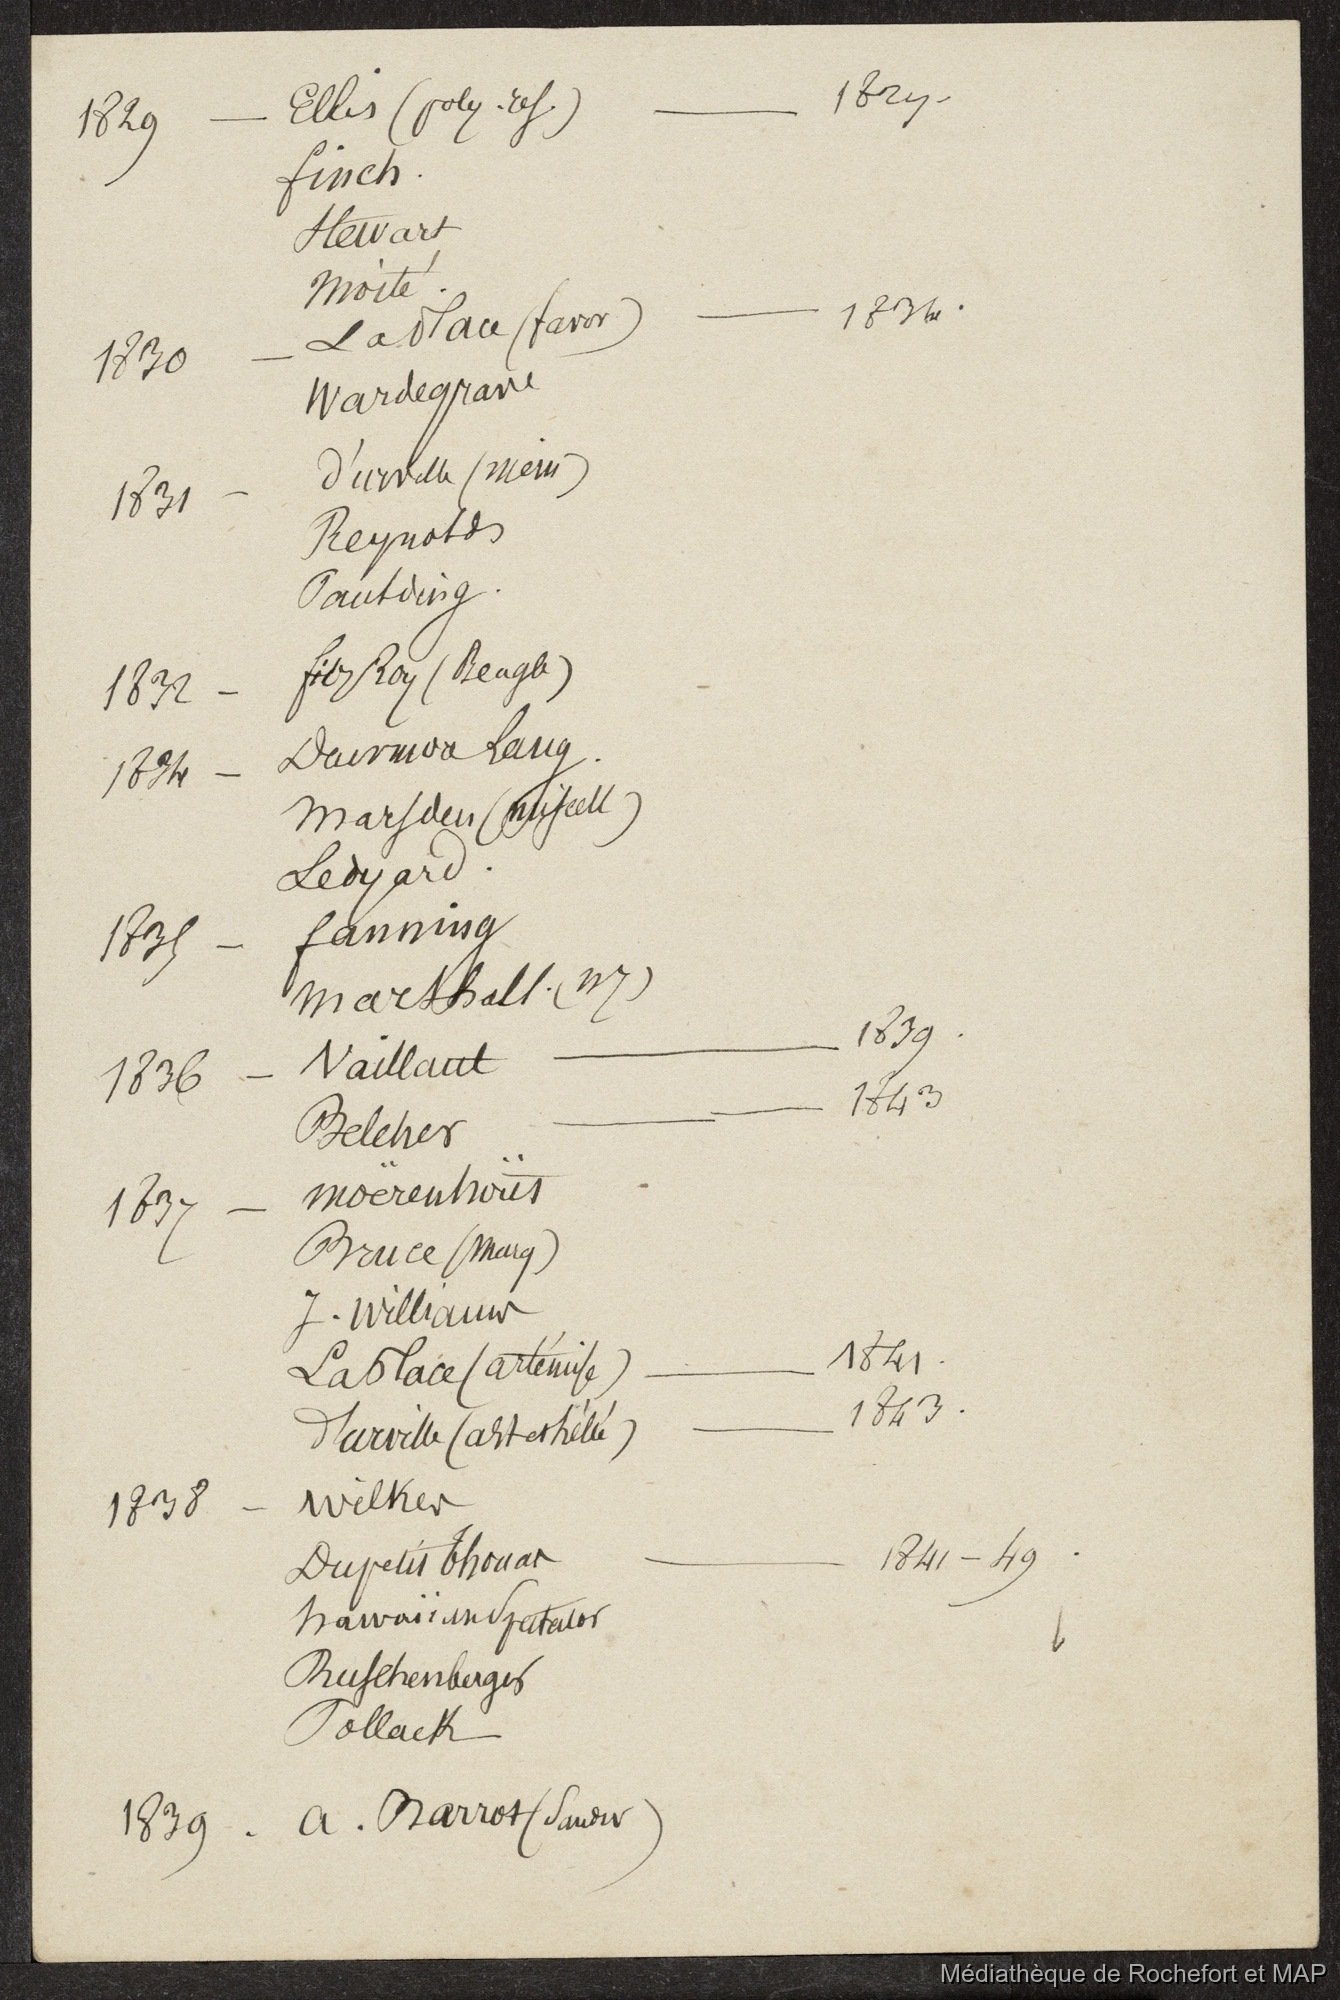 1829 — Ellis (poly. res.) — 1829.
Finch.
Stewart
Moité.
1830 — La Place (favor) — 1834.
Wardegrave
1831 — D'urville (mém)
Reynolds
Paulding.
1832 — fitz Roy (Beagle)
1834 — Lang.
Marsden (miscell)
Ledyard.
1835 — Fanning
Marshall. (NZ)
1836 — Vaillant — 1839.
Belcher — 1843
1837 — Moërenhoüt
Bruce (Marq)
J. Williams
La Place (artémise) — 1841.
D'urville (ast et zélée) — 1843.
1838 — Wilkes
Dupetit Thouars — 1841 – 49.
hawaiian Spectator
Ruschenberger
Pollack
1839. a. Barrot (Sandw)
Médiathèque de Rochefort et MAP